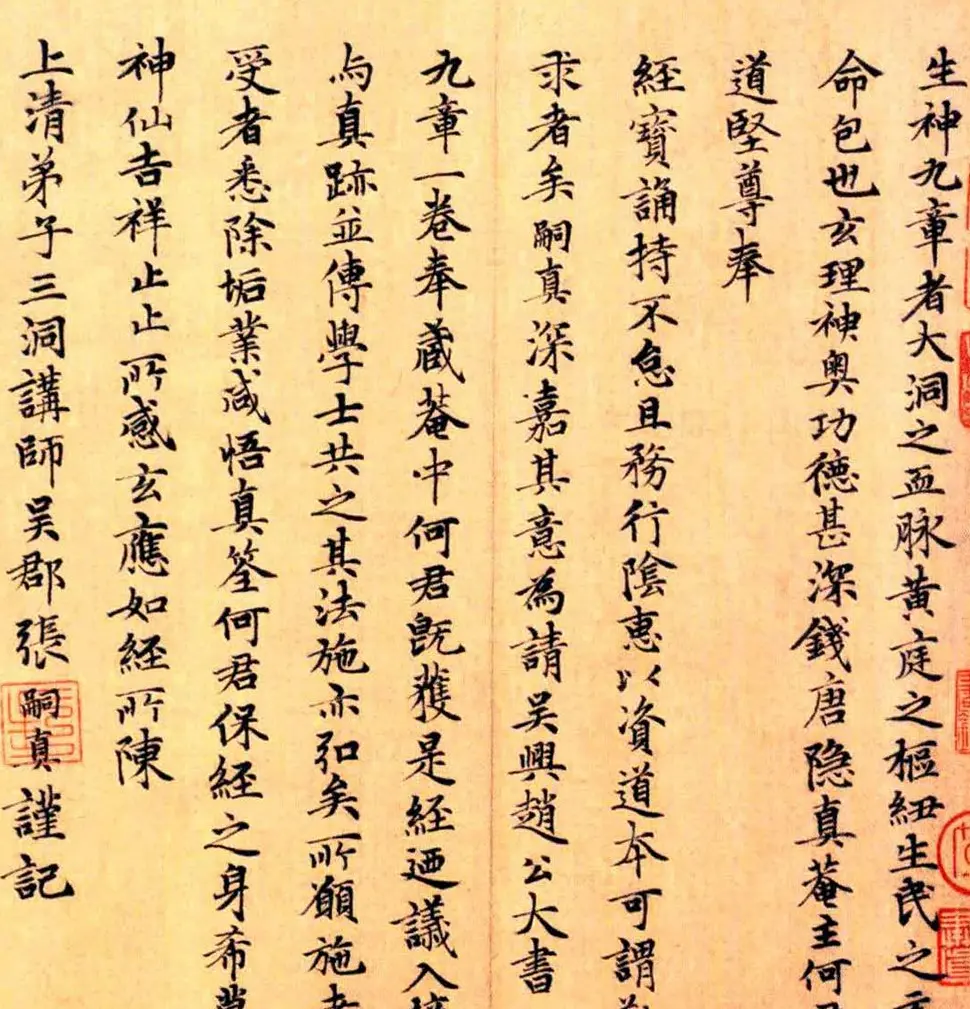 生神九章者大洞之血脉黄庭之樞紐生民之
命包也玄理神奥功德甚深錢唐隐真菴主何
道堅尊奉
經寶誦持不怠且務行陰惠以資道本可謂
求者矣嗣真深嘉其意為請吴興趙公大書
九章一卷奉藏菴中何君既獲是經迺議入
與真跡並傳學士共之其法施亦弘矣所願施
受者悉除垢業咸悟真筌何君保經之身希
神仙吉祥止止所感玄應如經所陳
上清弟子三洞講師吴郡張嗣真謹記